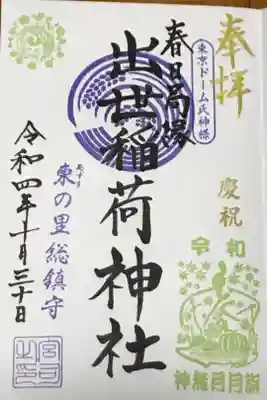 奉拝
慶祝
令和
東京ドーム氏神様
春日局縁
出世稲荷神社
あずま
東の里総鎮守
令和四年十月三十日